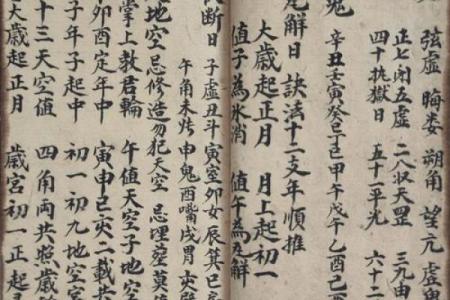 弦虛 晦娄 朔角 望亢 虛鬼
正七闭五虛 二八收天罡 三九申
四十执獄日 五十一平光 六十二
鬼
辛丑壬寅癸巳丁巳甲午戊午乙酉己酉
瓦解日 訣法十二支年順推
大歲起正月 月上起初一
值子為氷消 值午為瓦解
断日 子虛丑斗寅室卯女辰箕巳房
午角未 申鬼酉觜戌胃亥壁
地空忌修造勿犯天空 忌埋塟莫
掌上教君輪 午值天空子地空
卯酉定年中 寅申巳亥二載共
子年子起中 初一初九地空宮
十三天空值 四角両共照歲
大歲起正月 歲宮初一正起